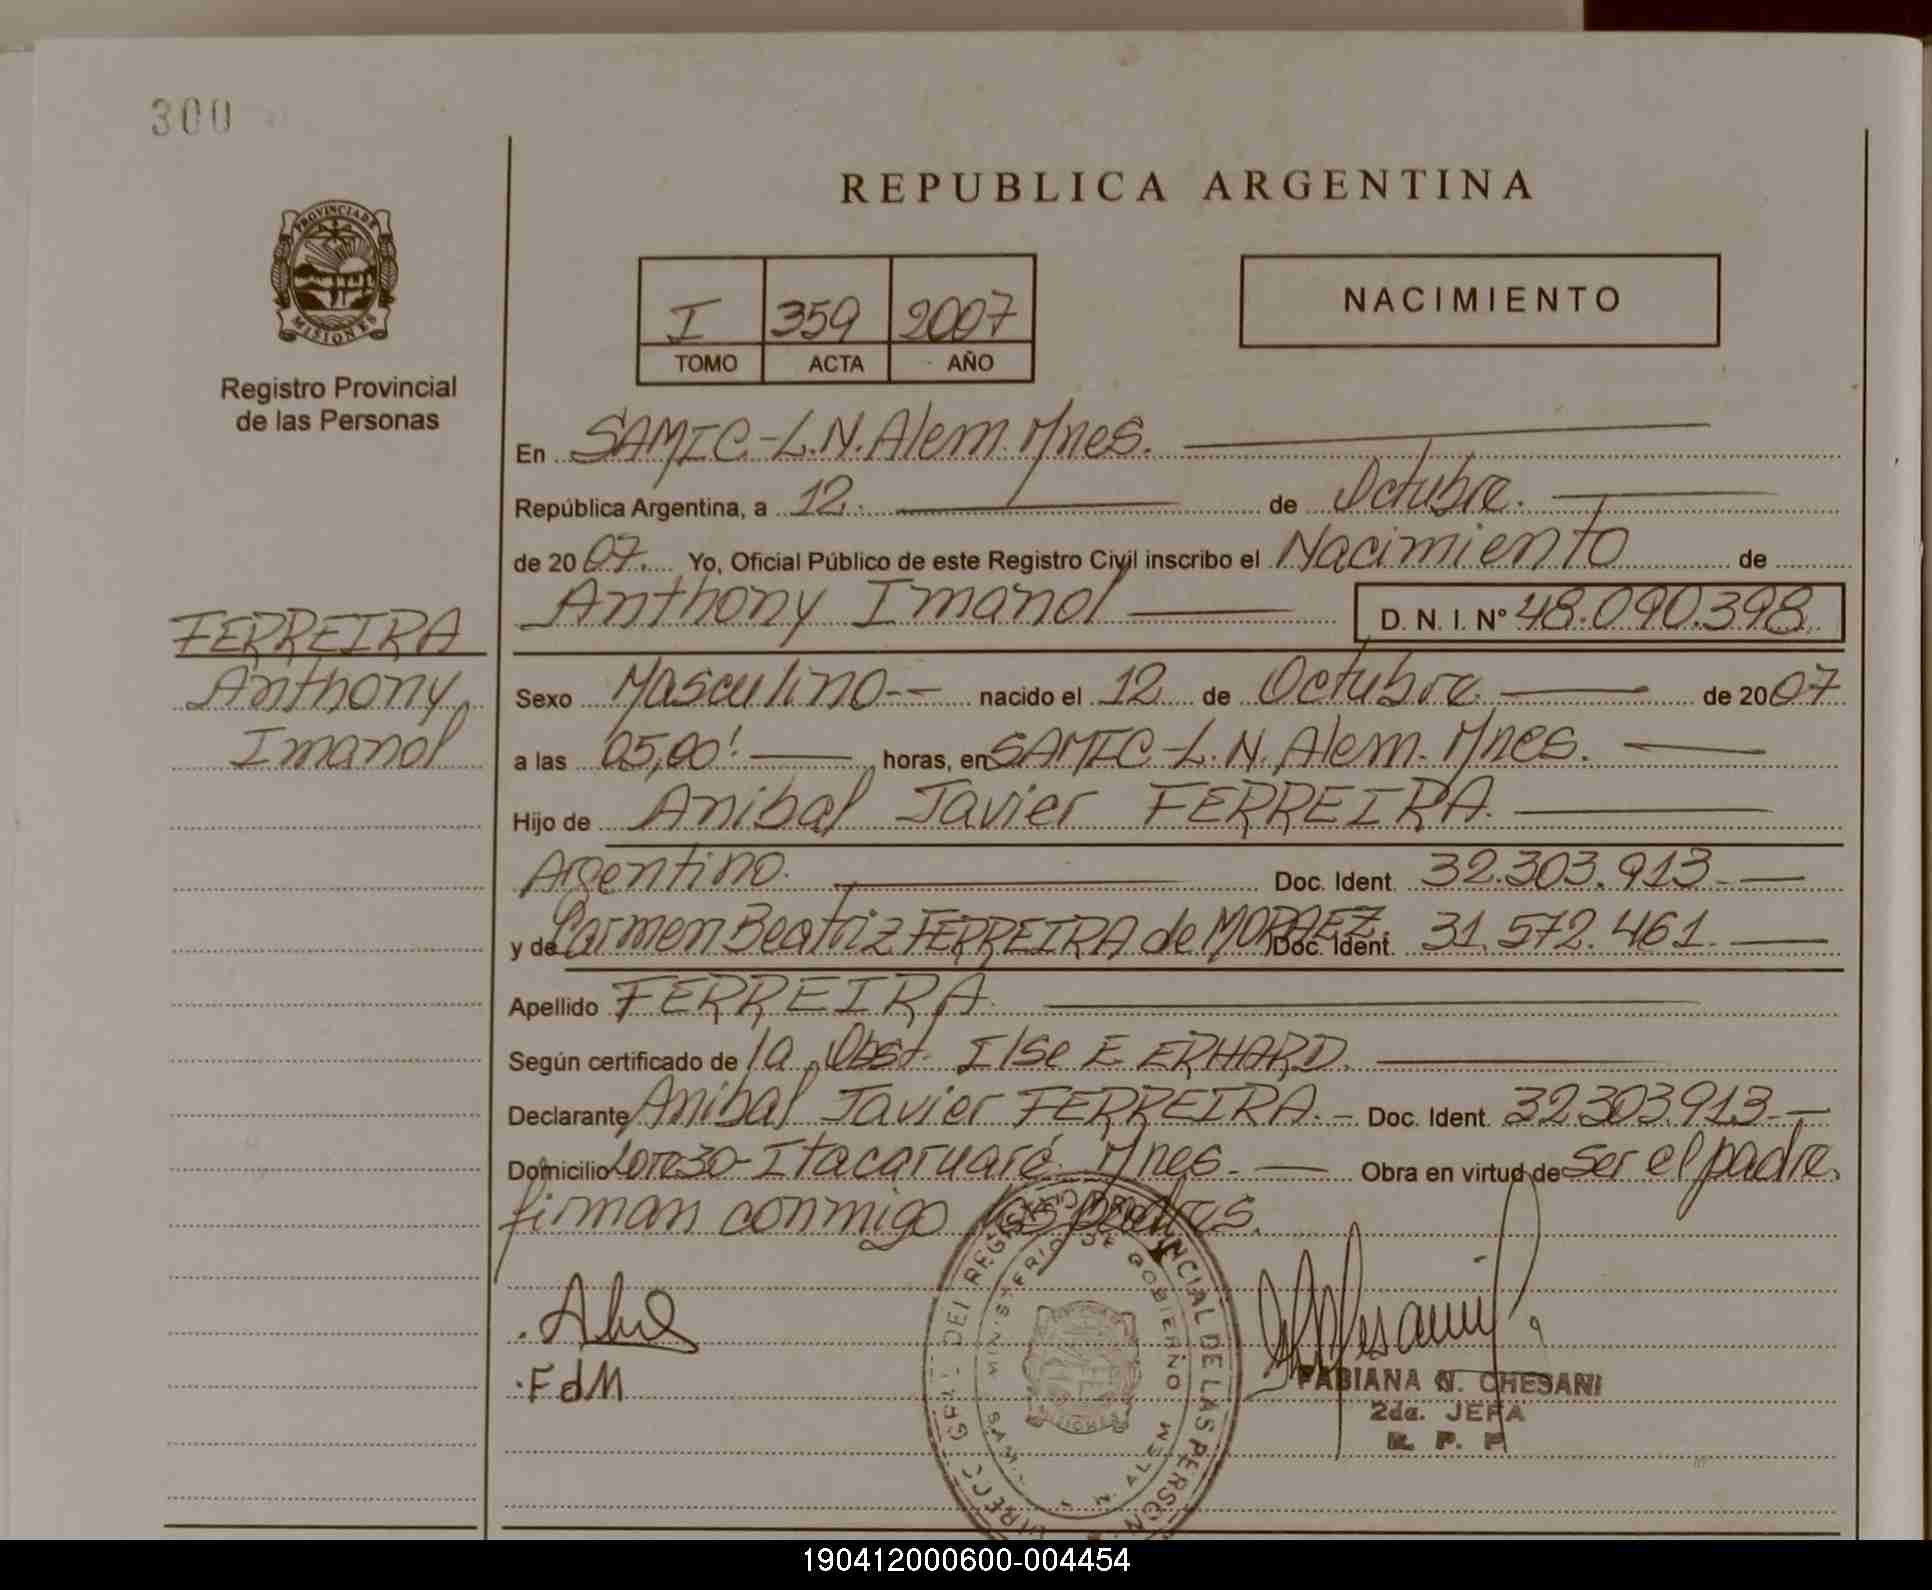 300
REPUBLICA ARGENTINA
PROVINCIA DE
MISIONES
Registro Provincial
de las Personas
I 359 2007
TOMO ACTA AÑO
NACIMIENTO
En SAMIC-L.N.Alem. Mnes.
República Argentina, a 12. de Octubre.
de 2007. Yo, Oficial Público de este Registro Civil inscribo el Nacimiento de
Anthony Imanol D. N. I. Nº 48.090.398
FERREIRA
Anthony
Imanol
Sexo Masculino-- nacido el 12 de Octubre. de 2007
a las 05,00' horas, en SAMIC-L.N. Alem. Mnes.
Hijo de Anibal Javier FERREIRA.
Argentino. Doc. Ident. 32.303.913.-
y de Carmen Beatriz FERREIRA de MORAEZ. Doc. Ident. 31.572.461.
Apellido FERREIRA.
Según certificado de la Obst. Ilse E ERHARD.
Declarante Anibal Javier FERREIRA.- Doc. Ident. 32303.913.-
Domicilio Itacaruaré. Mnes. Obra en virtud de Ser el padre.
firman conmigo los padres.
DIREC. GRAL. DEL REGISTRO PROVINCIAL DE LAS PERSON
MINISTERIO DE GOBIERNO
N. ALEM
MISIONES
FdM
FABIANA N. CHESANI
2da. JEFA
R. P. P
190412000600-004454